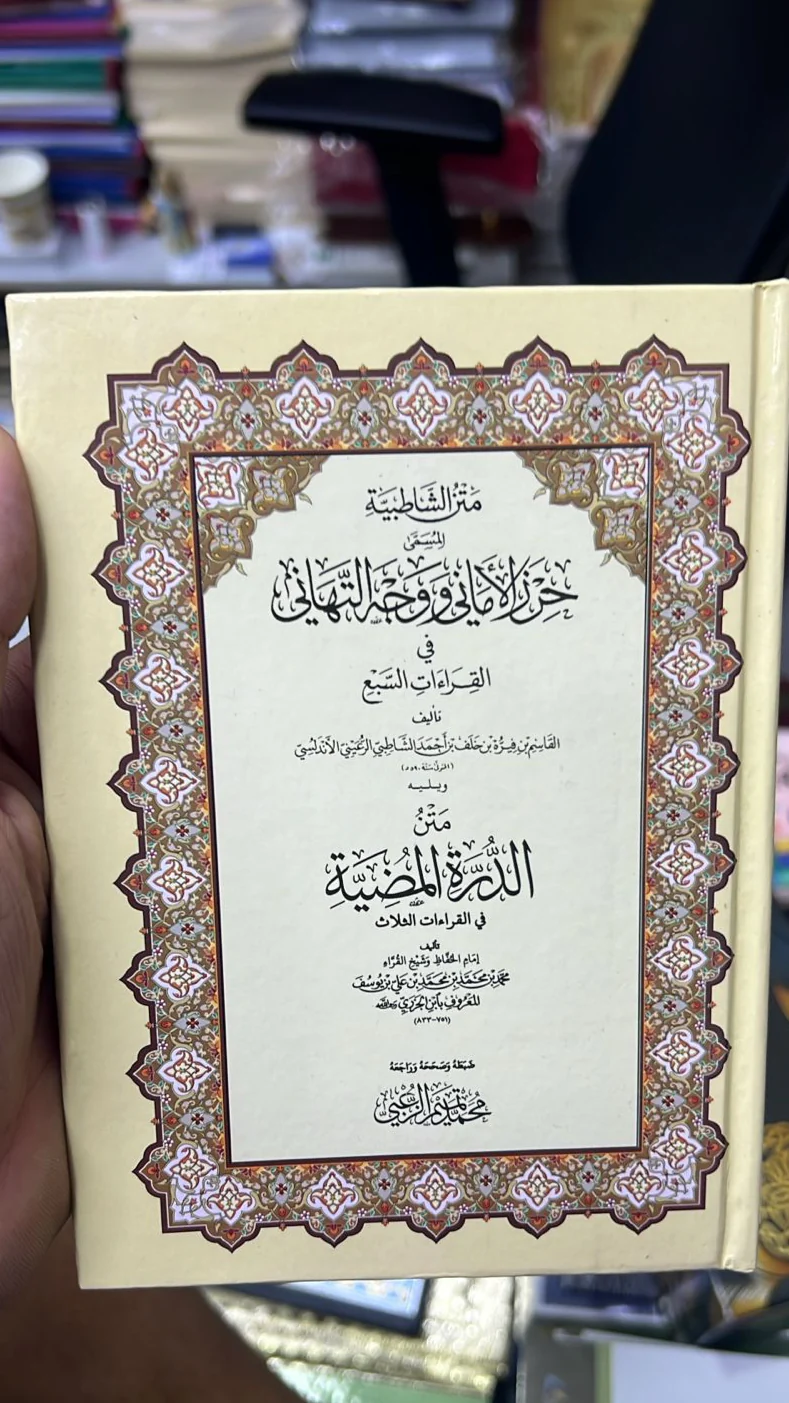 مَتْنُ الشَّاطِبِيَّةِ
المُسَمَّى
حِرْزُ الأَمَانِي وَوَجْهُ التَّهَانِي
فِي
القِرَاءَاتِ السَّبْعِ
تأليف
القَاسِمِ بْنِ فِيرُّهْ بْنِ خَلَفِ بْنِ أَحْمَدَ الشَّاطِبِيِّ الرُّعَيْنِيِّ الأَنْدَلُسِيِّ
(المتوفى سَنَة ٥٩٠ هـ)
ويليه
مَتْنُ
الدُّرَّةِ المُضِيَّةِ
في القراءات الثلاث
تأليف
إمَامِ الحُفَّاظِ وَشَيْخِ القُرَّاءِ
مُحَمَّدِ بْنِ مُحَمَّدِ بْنِ مُحَمَّدِ بْنِ عَلِيِّ بْنِ يُوسُفَ
المَعْرُوفِ بِابْنِ الجَزَرِيِّ رحمه الله
(٧٥١-٨٣٣)
ضَبَطَهُ وَصَحَّحَهُ وَرَاجَعَهُ
مُحَمَّد تَمِيم الزُّعْبِي